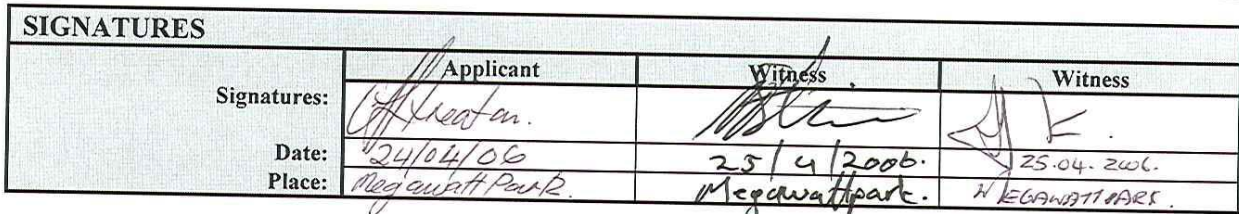 SIGNATURES
Applicant Witness Witness
Signatures:
Date: 24/04/06 25/4/2006. 25.04.2006.
Place: Megawatt Park. Megawattpark. MEGAWATT PARK.